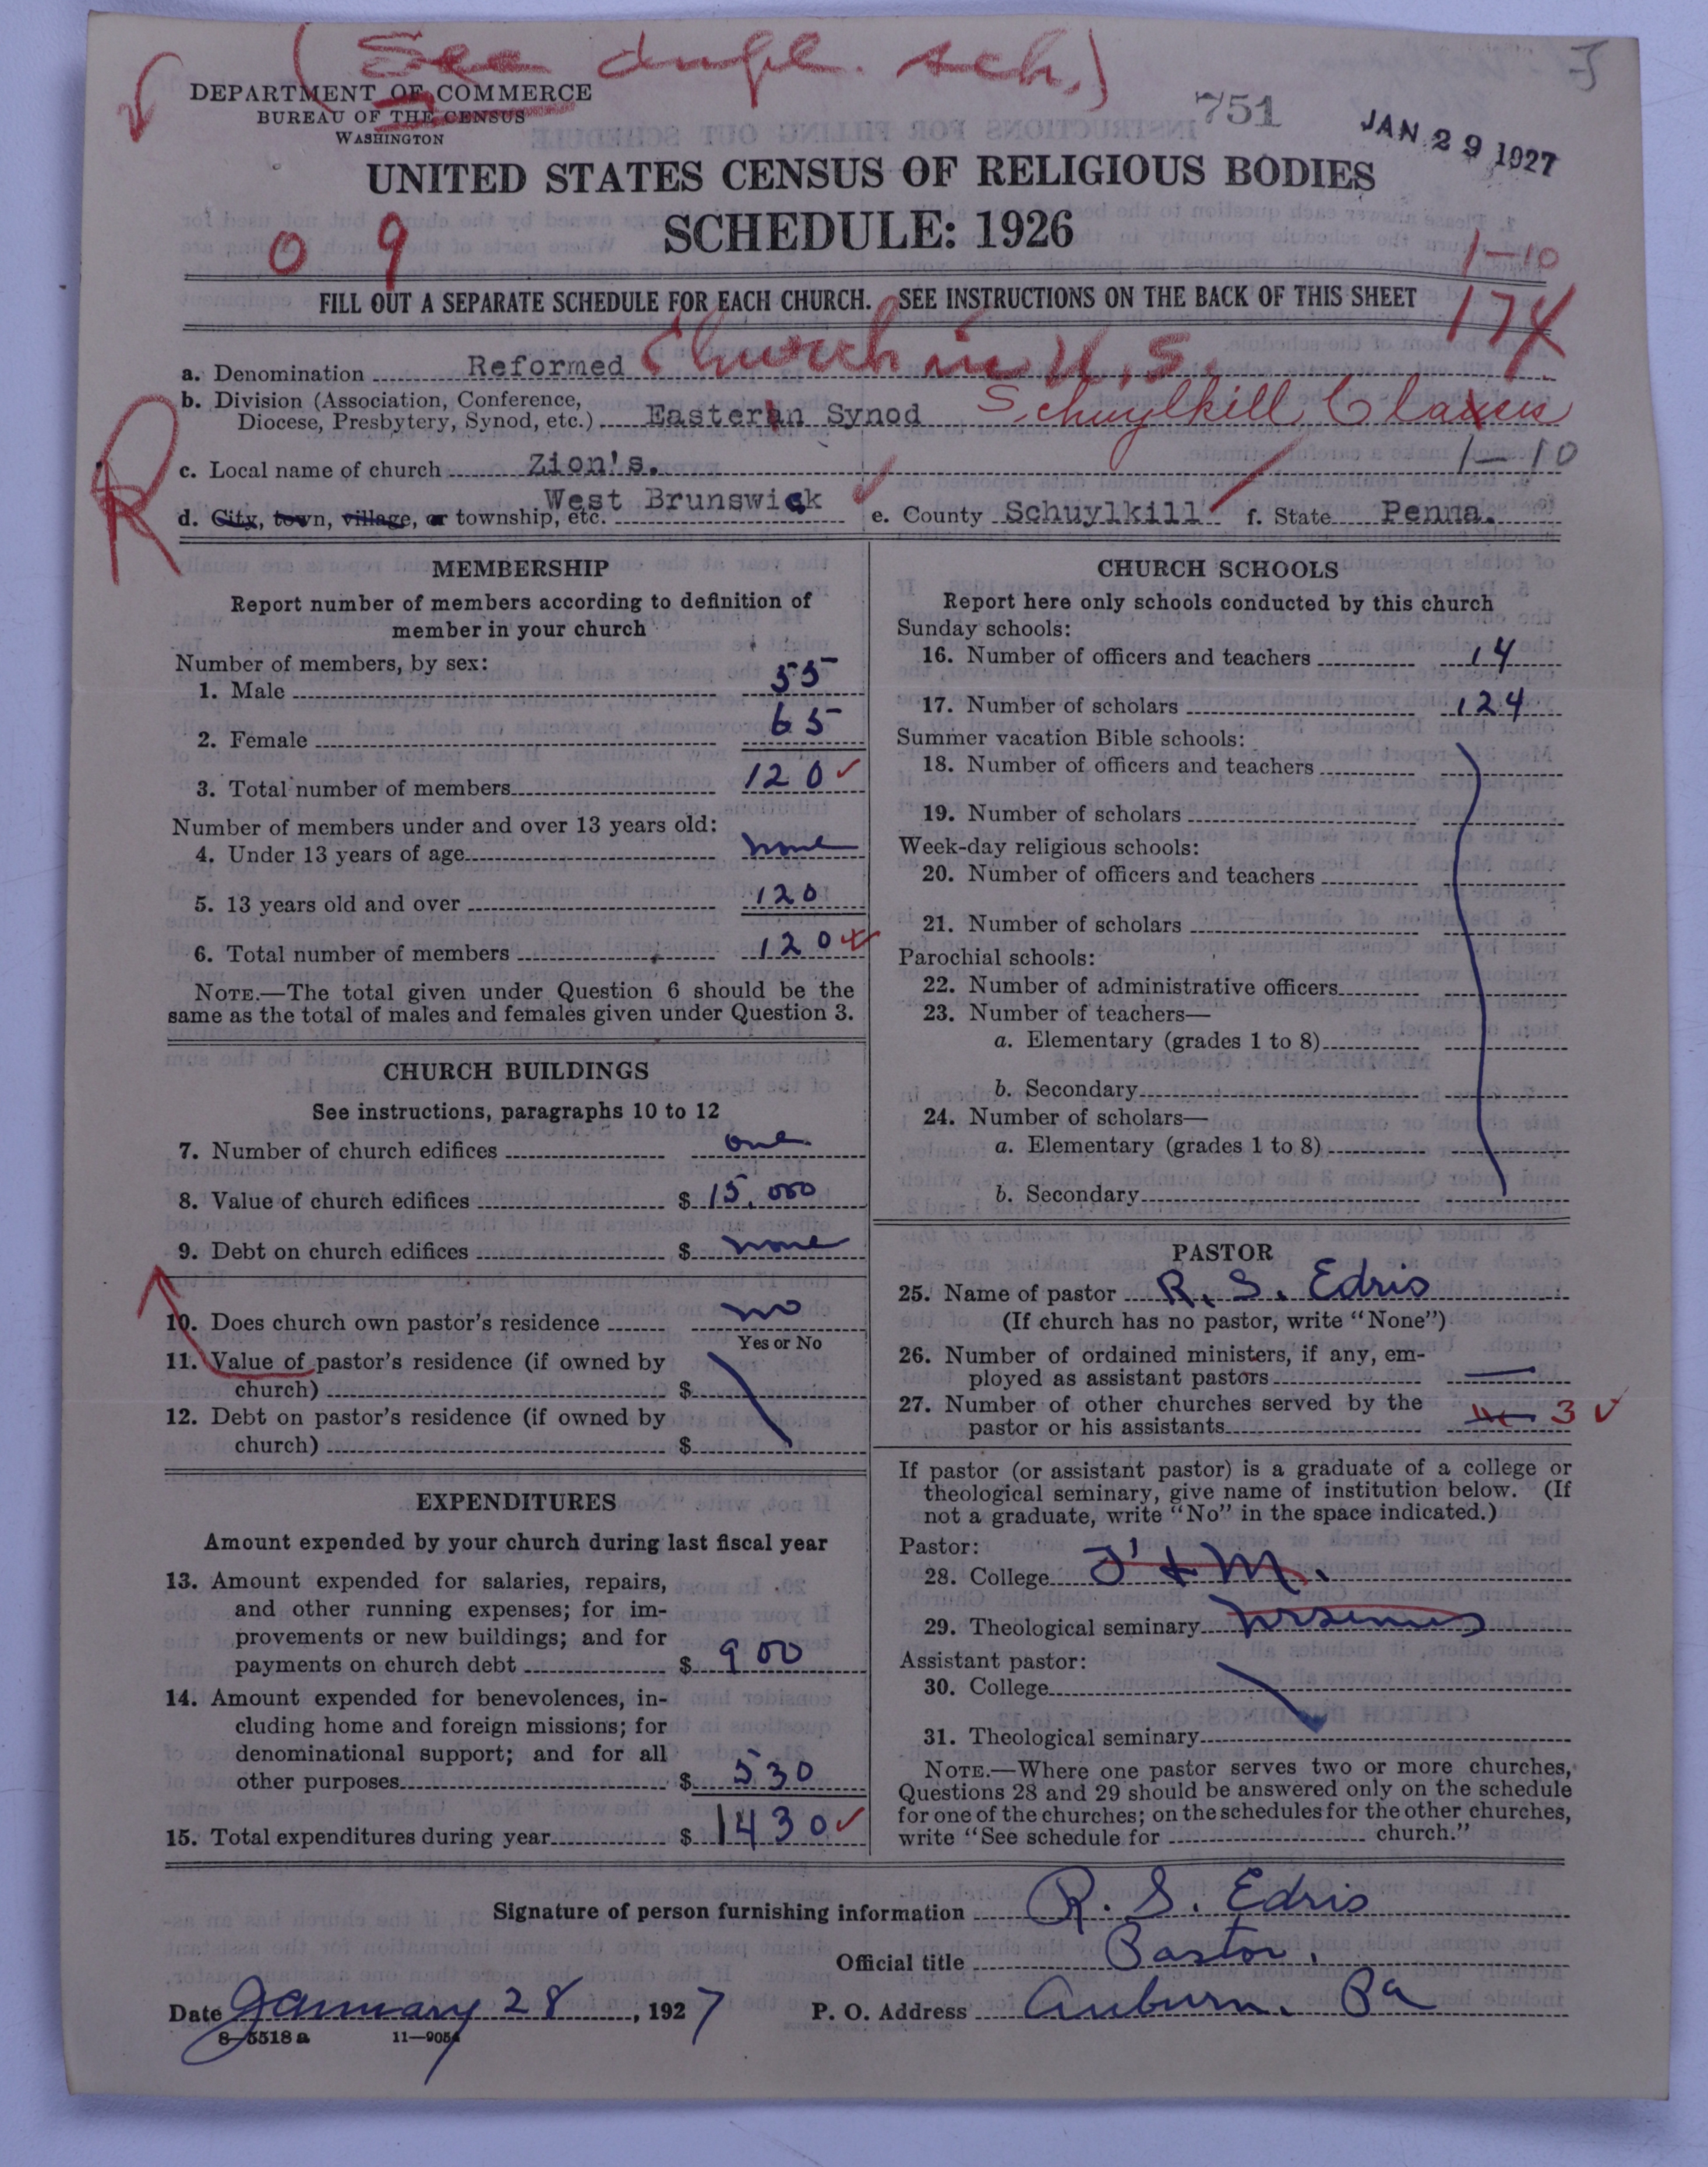 (See dupl. sch.)
DEPARTMENT OF COMMERCE
BUREAU OF THE CENSUS
WASHINGTON
751
JAN 29 1927
UNITED STATES CENSUS OF RELIGIOUS BODIES
SCHEDULE: 1926
0 9
1-10
FILL OUT A SEPARATE SCHEDULE FOR EACH CHURCH. SEE INSTRUCTIONS ON THE BACK OF THIS SHEET
174
a. Denomination Reformed Church in U.S.
b. Division (Association, Conference,
Diocese, Presbytery, Synod, etc.) Eastern Synod Schuylkill Classis
R
c. Local name of church Zion's. 1-10
d. City, town, village, or township, etc. West Brunswick e. County Schuylkill f. State Penna.
MEMBERSHIP
Report number of members according to definition of
member in your church
Number of members, by sex:
1. Male 55
2. Female 65
3. Total number of members 120
Number of members under and over 13 years old:
4. Under 13 years of age none
5. 13 years old and over 120
6. Total number of members 120
NOTE.—The total given under Question 6 should be the
same as the total of males and females given under Question 3.
CHURCH BUILDINGS
See instructions, paragraphs 10 to 12
7. Number of church edifices one
8. Value of church edifices $ 15,000
9. Debt on church edifices $ none
10. Does church own pastor's residence no
Yes or No
11. Value of pastor's residence (if owned by
church) $
12. Debt on pastor's residence (if owned by
church) $
EXPENDITURES
Amount expended by your church during last fiscal year
13. Amount expended for salaries, repairs,
and other running expenses; for im-
provements or new buildings; and for
payments on church debt $ 900
14. Amount expended for benevolences, in-
cluding home and foreign missions; for
denominational support; and for all
other purposes $ 530
15. Total expenditures during year $ 1430
CHURCH SCHOOLS
Report here only schools conducted by this church
Sunday schools:
16. Number of officers and teachers 14
17. Number of scholars 124
Summer vacation Bible schools:
18. Number of officers and teachers
19. Number of scholars
Week-day religious schools:
20. Number of officers and teachers
21. Number of scholars
Parochial schools:
22. Number of administrative officers
23. Number of teachers—
a. Elementary (grades 1 to 8)
b. Secondary
24. Number of scholars—
a. Elementary (grades 1 to 8)
b. Secondary
PASTOR
25. Name of pastor R. S. Edris
(If church has no pastor, write "None")
26. Number of ordained ministers, if any, em-
ployed as assistant pastors —
27. Number of other churches served by the
pastor or his assistants 3
If pastor (or assistant pastor) is a graduate of a college or
theological seminary, give name of institution below. (If
not a graduate, write "No" in the space indicated.)
Pastor:
28. College F & M.
29. Theological seminary Ursinus
Assistant pastor:
30. College
31. Theological seminary
NOTE.—Where one pastor serves two or more churches,
Questions 28 and 29 should be answered only on the schedule
for one of the churches; on the schedules for the other churches,
write "See schedule for church."
Signature of person furnishing information R. S. Edris
Official title Pastor.
Date January 28, 1927 P. O. Address Auburn, Pa
8—5518 a 11—9054